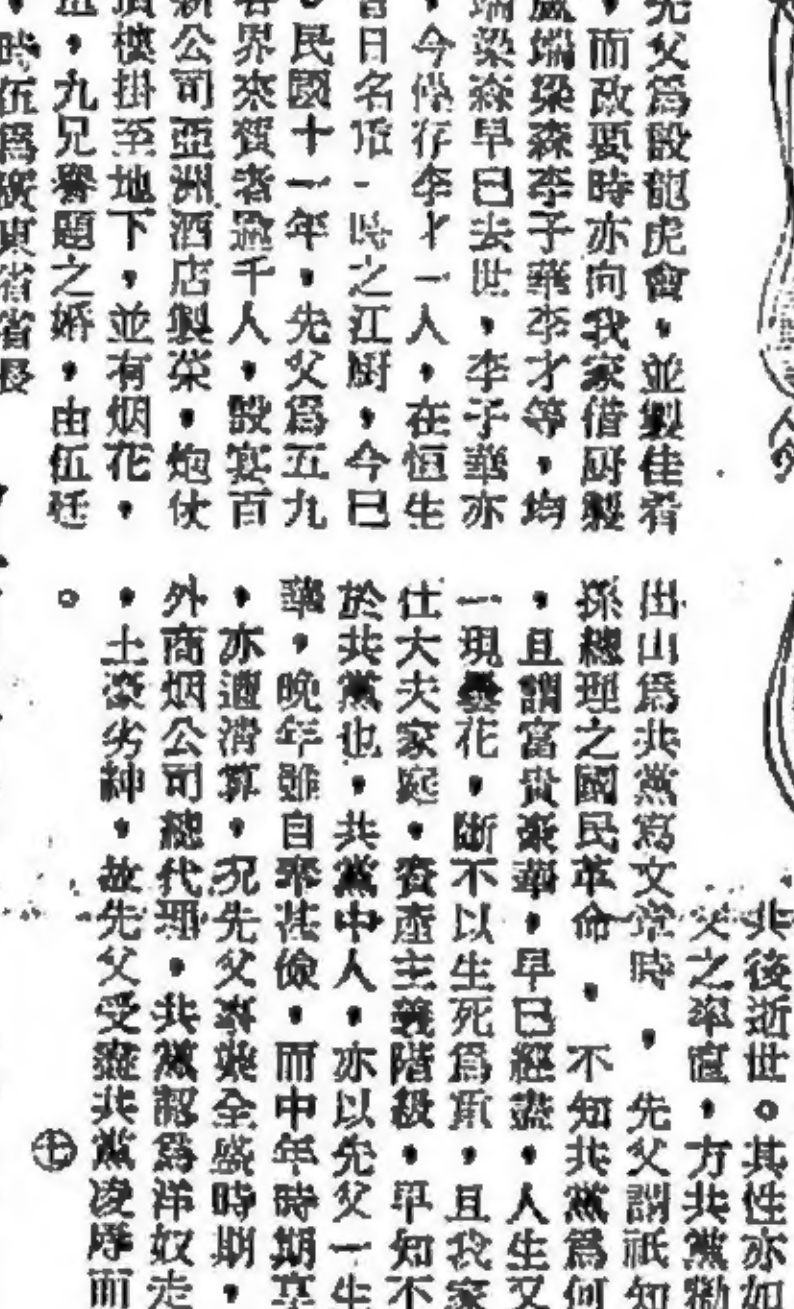 先父爲設龍虎會，並製佳肴
，而政要時亦向我家借厨製
端梁森李子華李才等，均
梁森早已去世，李子華亦
，今僅存李才一人，在恒生
昔日名一時之江厨，今已
，民國十一年，先父爲五九
各界來賀者逾千人，設宴百
新公司亞洲酒店製菜，炮仗
頂樓掛至地下，並有烟花，
，九兄譽題之婚，由伍廷
，時伍爲廣東省省長
共後逝世。其性亦如
父之率直，方共黨
出山爲共黨寫文章時，先父謂祇知
孫總理之國民革命，不知共黨爲何
，且謂富貴豪華，早已經盡，人生又
一現曇花，斷不以生死爲，且我家
仕大夫家庭，資產主義階級，早知不
於共黨也，共黨中人，亦以先父一生
華，晚年雖自奉甚儉，而中年時期
，亦遭清算，况先父事業全盛時期，
外商烟公司總代理，共黨認爲洋奴走
，土豪劣紳，故先父受盡共黨凌辱而
。